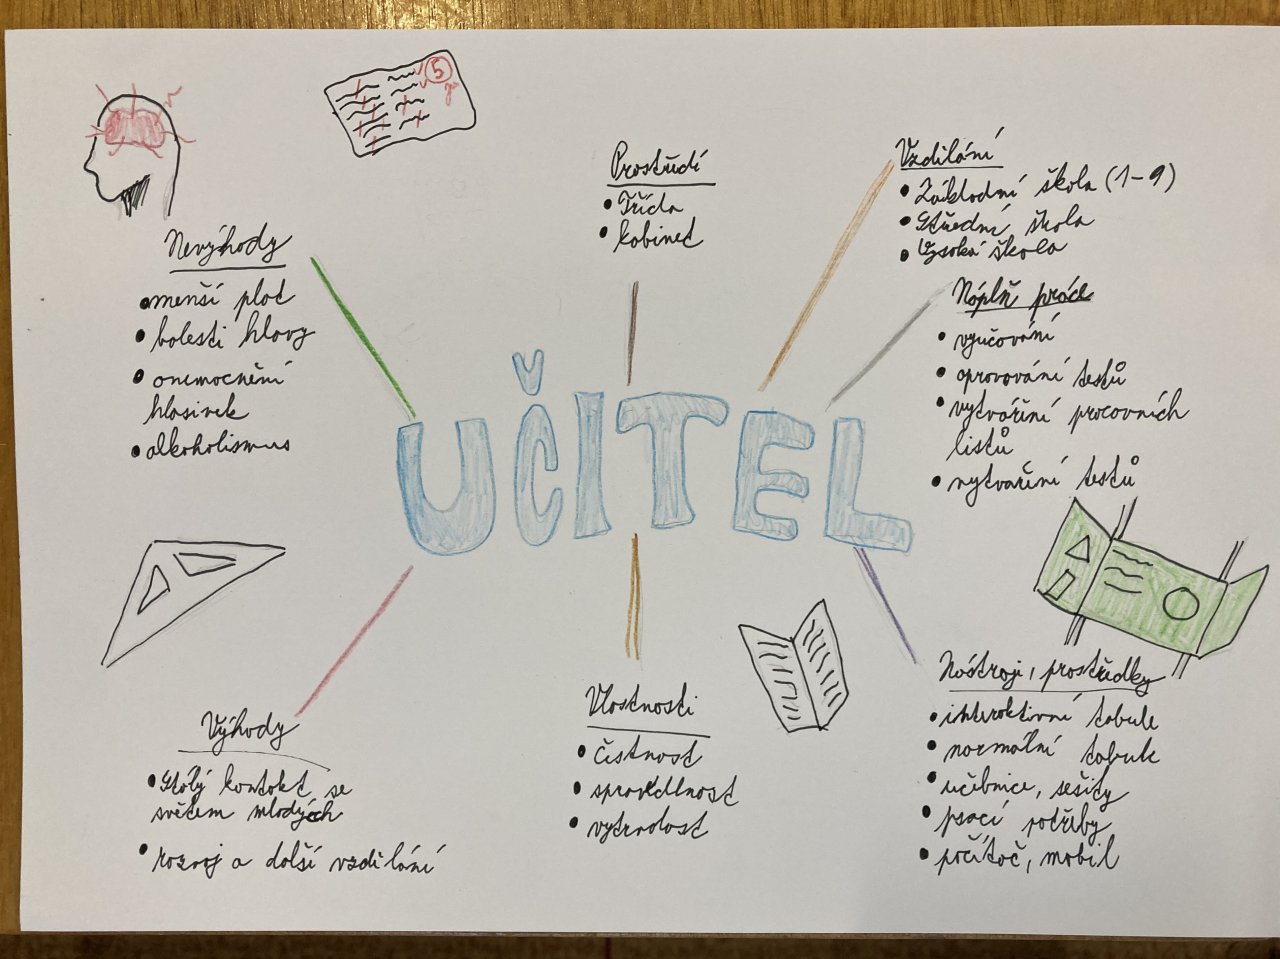 5
Prostředí
• Třída
• kabinet
Vzdělání
• Základní škola (1-9)
• Střední škola
• Vysoká škola
Nevýhody
• menší plat
• bolesti hlavy
• onemocnění
hlasivek
• alkoholismus
Náplň práce
• vyučování
• opravování testů
• vytváření pracovních
listů
• vytvaření testů
UČITEL
Výhody
• Stálý kontakt se
světem mladých
• rozvoj a další vzdělání
Vlastnosti
• čistnost
• spravedlnost
• vytrvalost
Nástroje, prostředky
• interaktivní tabule
• normální tabule
• učebnice, sešity
• psací potřeby
• počítač, mobil